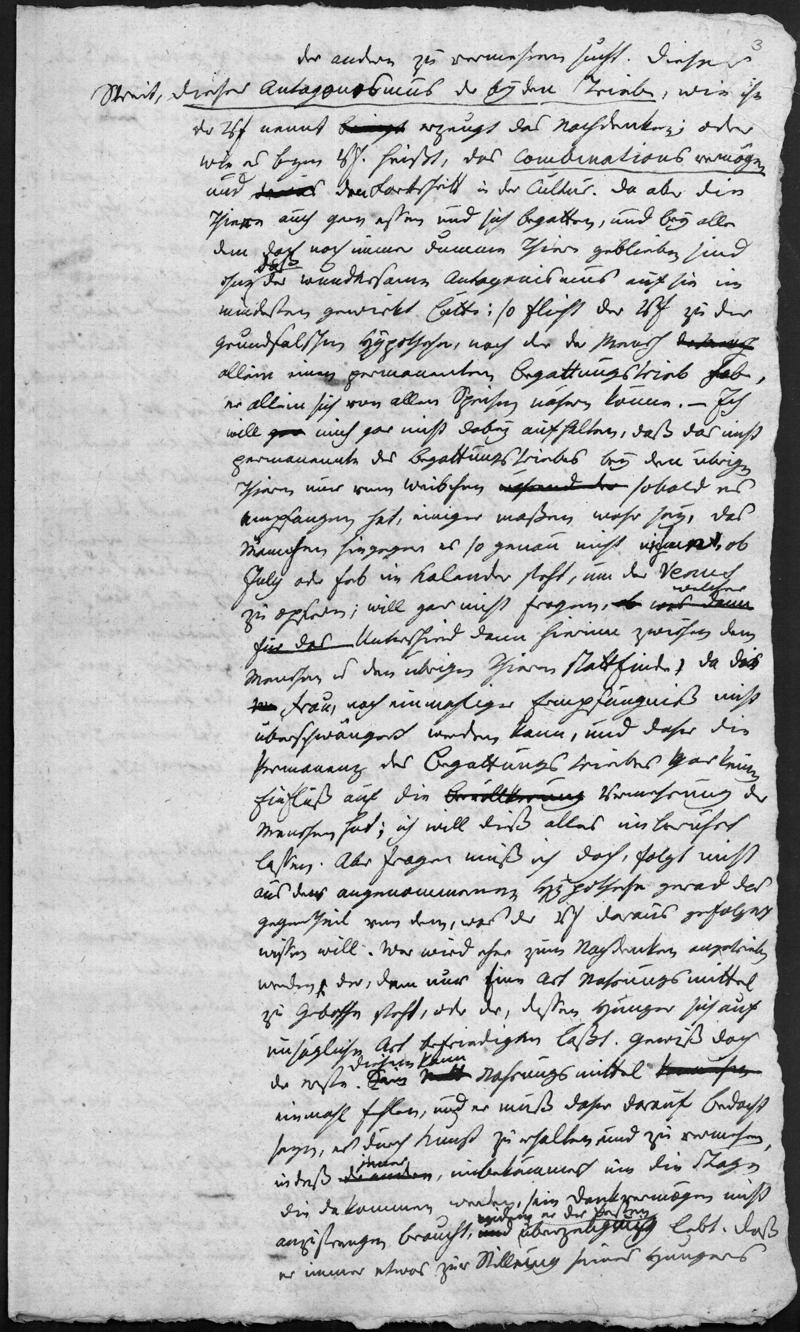 3
der andern zu vermehren sucht. Dieser
Streit, dieser Antagonismus der beyden Triebe, wie ihn
der Vf nennt erzeugt das Nachdenken; oder
wie es beym Vf. heißt, das Combinationsvermögen
und den Fortschritt in der Cultur. Da aber die
Thiere auch gern essen und sich begatten, und bey alle
dem doch noch immer dumme Thiere geblieben sind
ohne daß der wundersame Antagonismus auf sie im
mindesten gewirkt hätte; so flieht der Vf zu der
grundfalschen Hypothese, nach der der Mensch
allein einen permanenten Begattungstrieb habe,
er allein sich von allen Speisen nähren könne. – Ich
will gar mich gar nicht dabey aufhalten, daß das nicht
permanente des Begattungstriebes bey den übrigen
Thieren nur vom Weibchen während der sobald es
empfangen hat, einiger maßen wahr sey, das
Männchen hingegen es so genau nicht nimmt, ob
July oder Feb im Kalender steht, um der Venus
zu opfern; will gar nicht fragen, ob was denn welcher
für das Unterschied denn hierinne zwischen dem
Menschen u den übrigen Thieren stattfinde, da die
Frau, nach einmahliger Empfängniß nicht
überschwängert werden kann, und daher die
Permanenz des Begattungstriebes gar keinen
Einfluß auf die Bevölkerung Vermehrung der
Menschen hat; ich will diß alles unberührt
lassen. Aber fragen muß ich doch, folgt nicht
aus der angenommenen Hypothese gerad das
gegentheil von dem, was der Vf daraus gefolgert
wissen will. Wer wird eher zum Nachdenken angetrieben
werden, der, dem nur Eine Art Nahrungsmittel
zu Gebothe steht, oder der, dessen Hunger sich auf
unsägliche Art befriedigen läßt. Gewiß doch
der erste. Diesem kann Nahrungsmittel
einmahl fehlen, und er muß daher darauf bedacht
seyn, es durch Kunst zu erhalten und zu vermehren,
indeß jener, unbekümmert um die Tage
die da kommen werden, sein Denkvermögen nicht
anzustrengen braucht, und indem er der festen Überzeugung lebt. Daß
er immer etwas zur Stillung seines Hungers